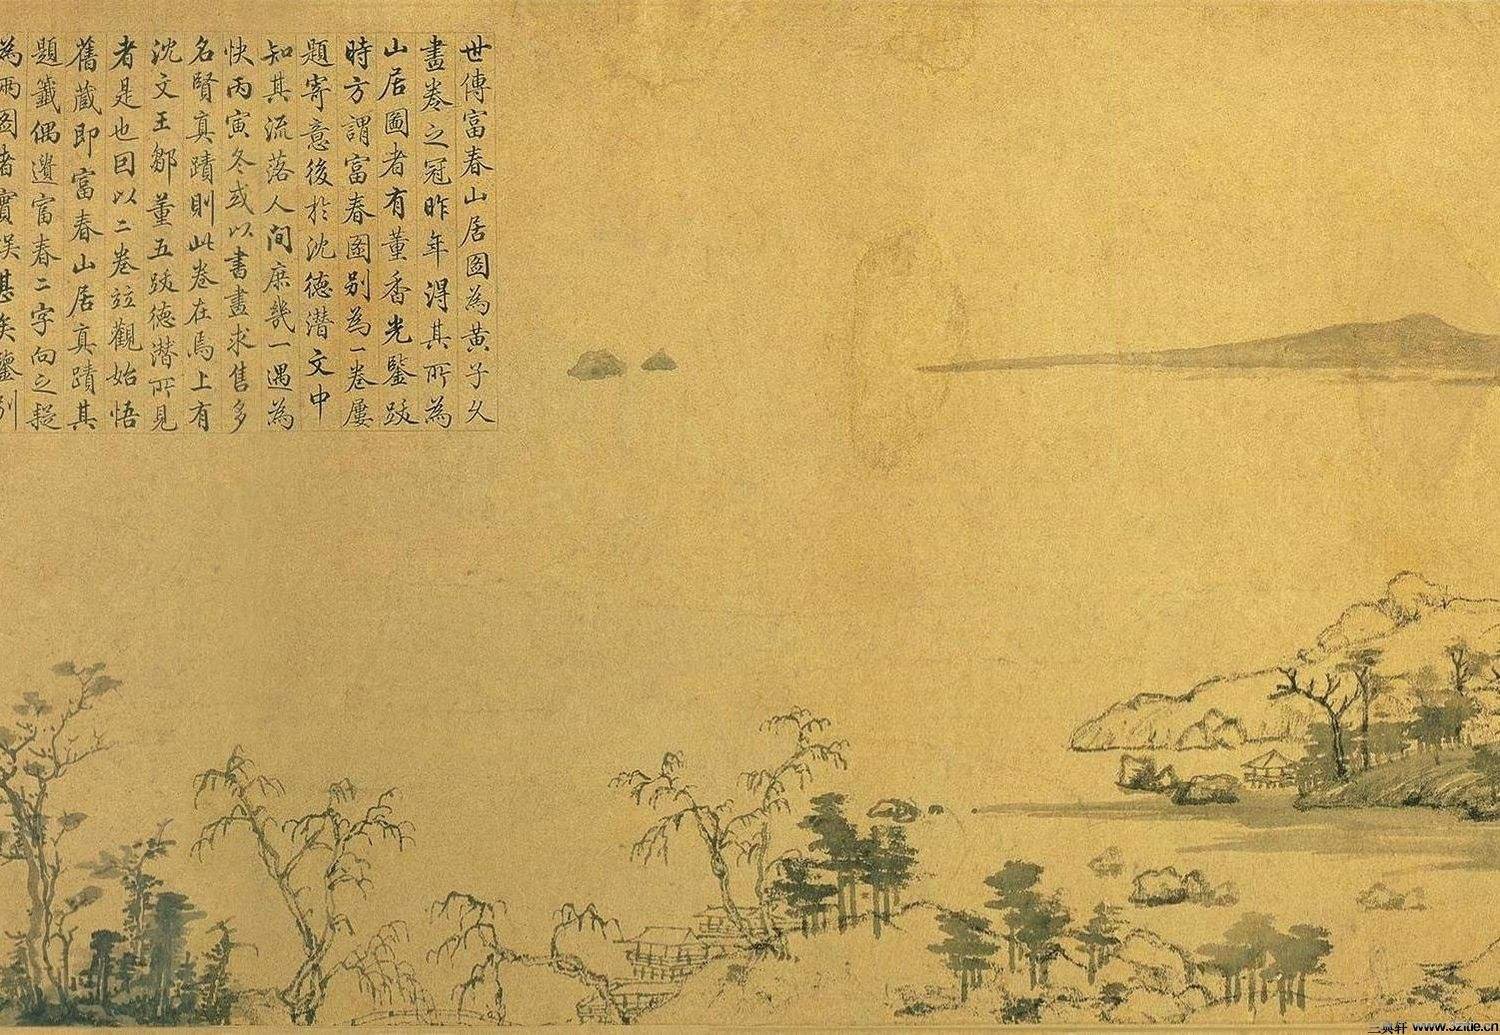 世傳富春山居圖為黃子久
畫卷之冠昨年得其所為
山居圖者有董香光鑒跋
時方謂富春圖別為一卷屢
題寄意後於沈德潛文中
知其流落人間庶幾一遇為
快丙寅冬或以書畫求售多
名賢真蹟則此卷在焉上有
沈文王鄒董五跋德潛所見
者是也因以二卷竝觀始悟
舊藏即富春山居真蹟其
題籤偶遺富春二字向之疑
為兩圖者實誤甚矣鑒別
三典軒 www.32ltle.cn